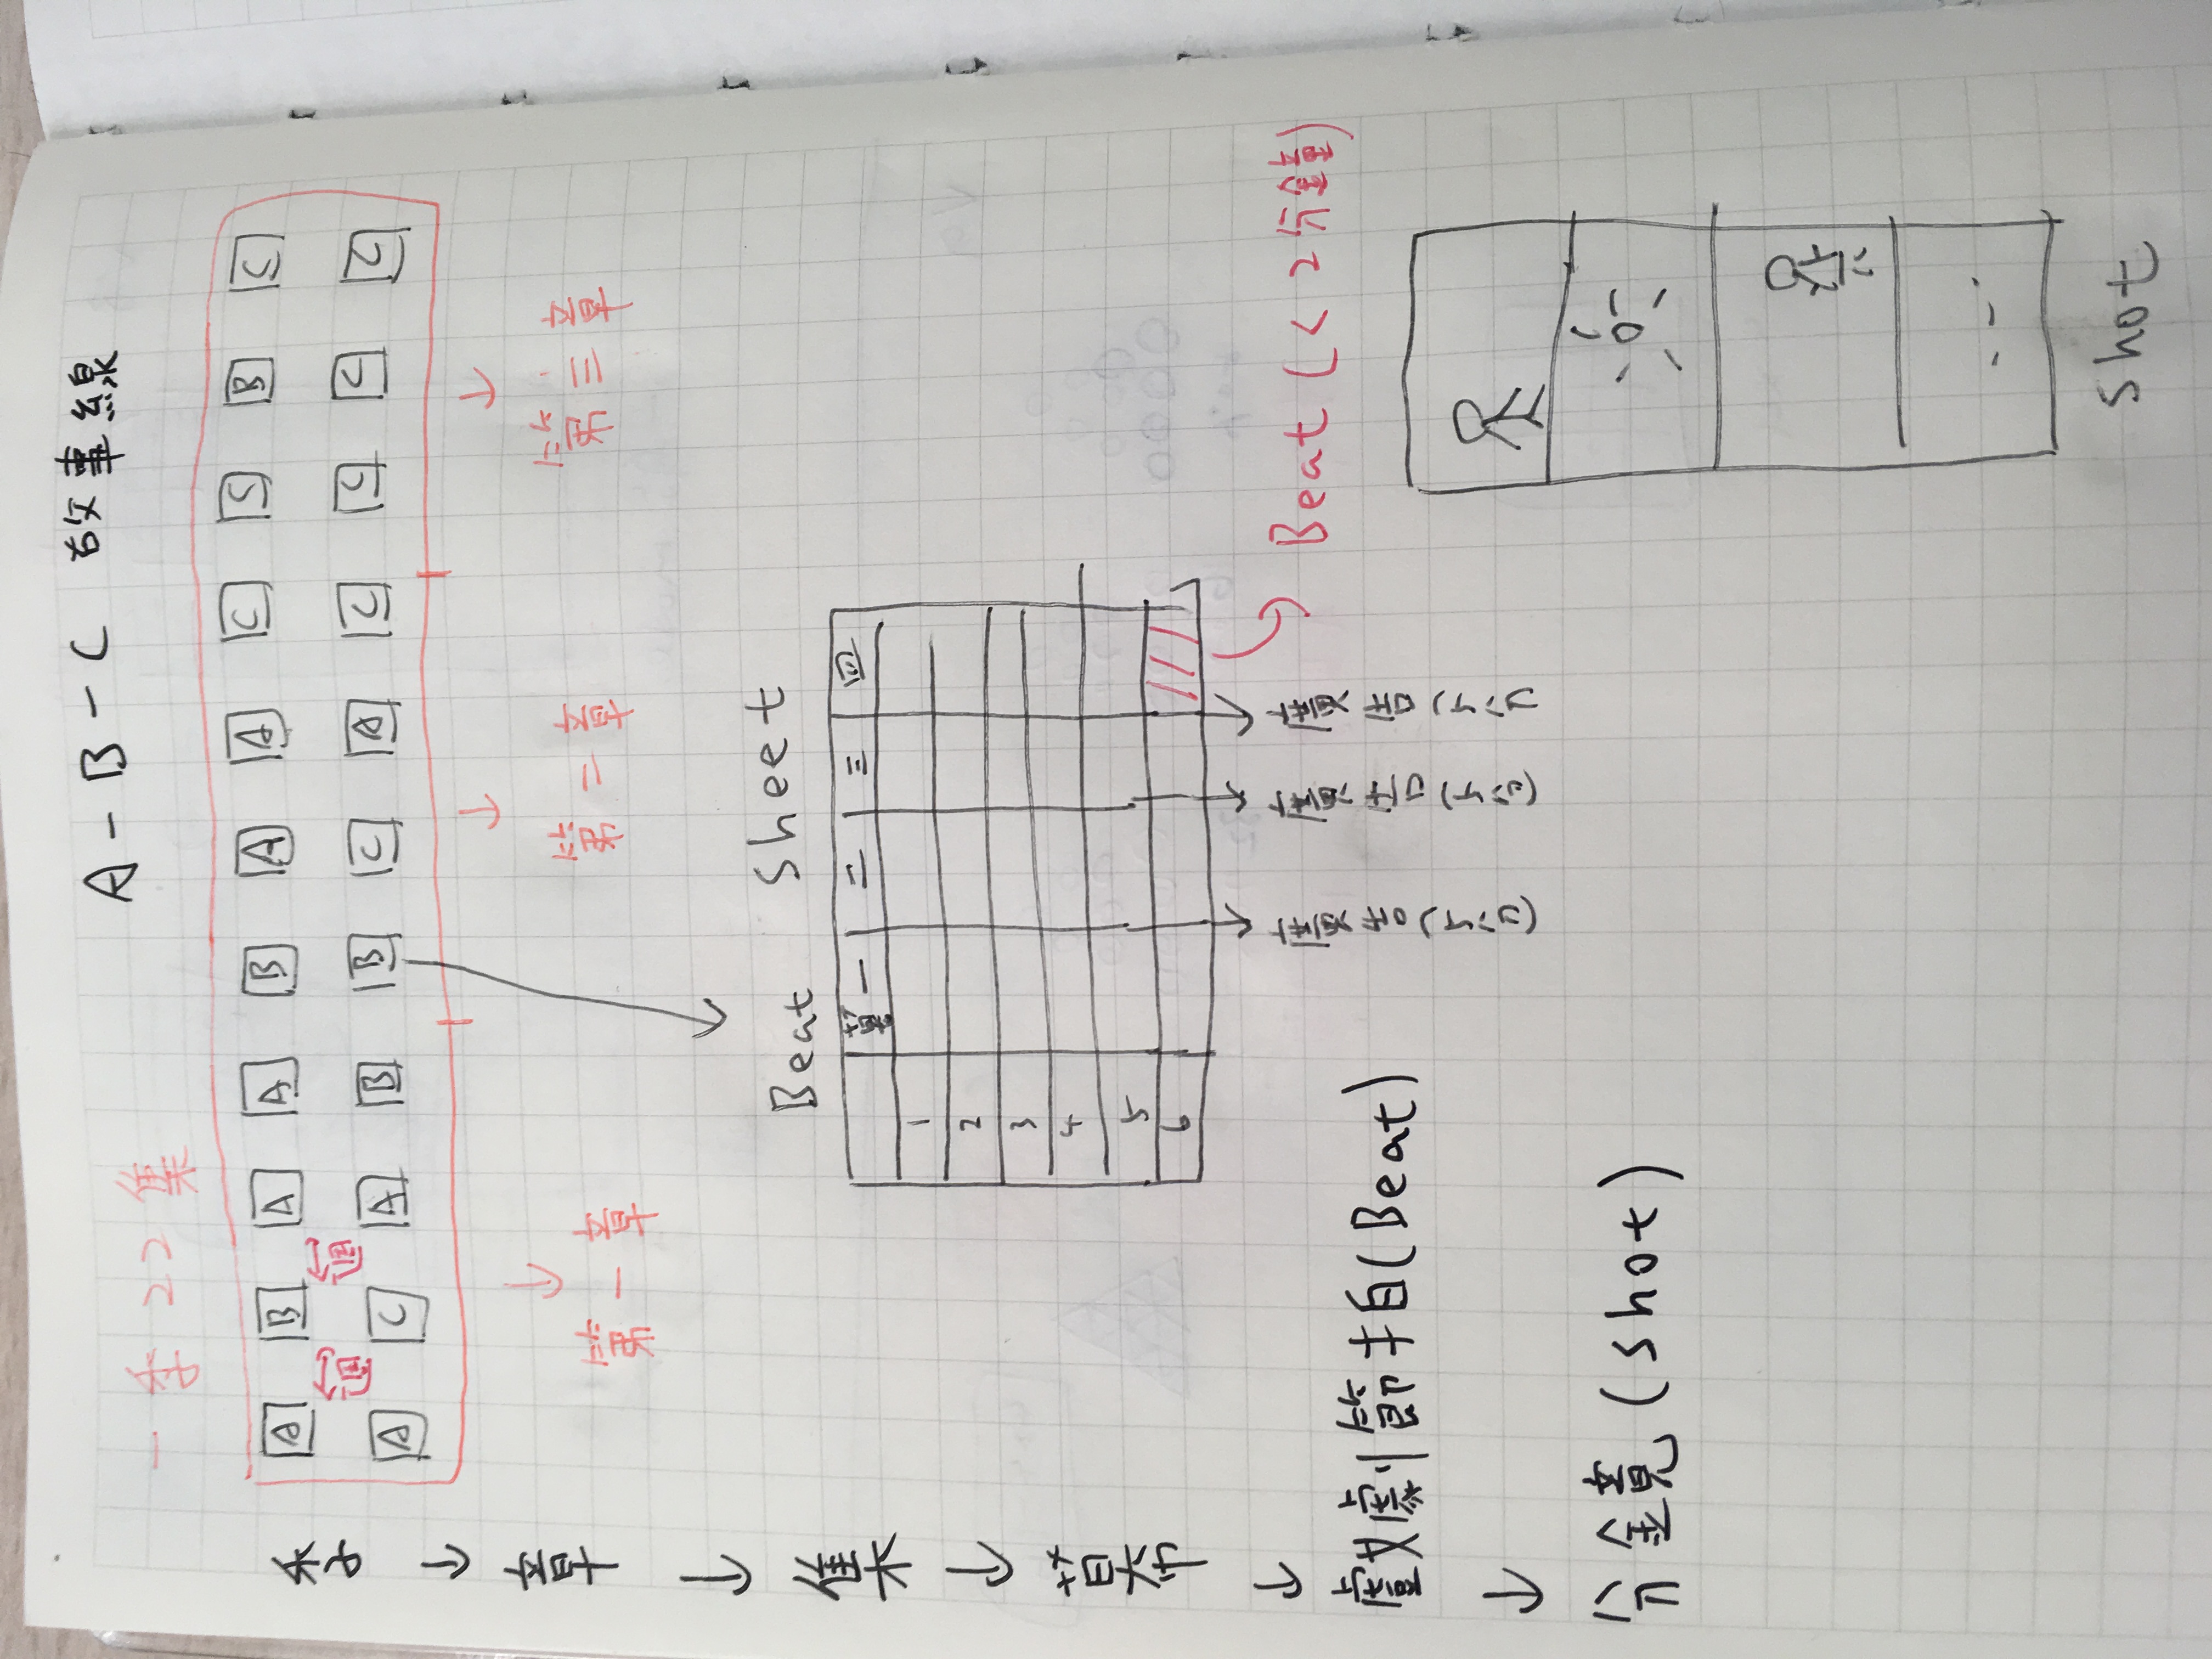 A-B-C 故事線
一季22集
A B A A B A A C C B C
週 週
A C A B B C A C C C C
第一章 第二章 第三章
季
↓
章
↓
集
↓
幕
↓
戲劇節拍(Beat)
↓
分鏡(shot)
Beat Sheet
幕一 二 三 四
1
2
3
4
5
6
廣告(4分)
廣告(4分)
廣告(4分)
Beat (<2分鐘)
shot